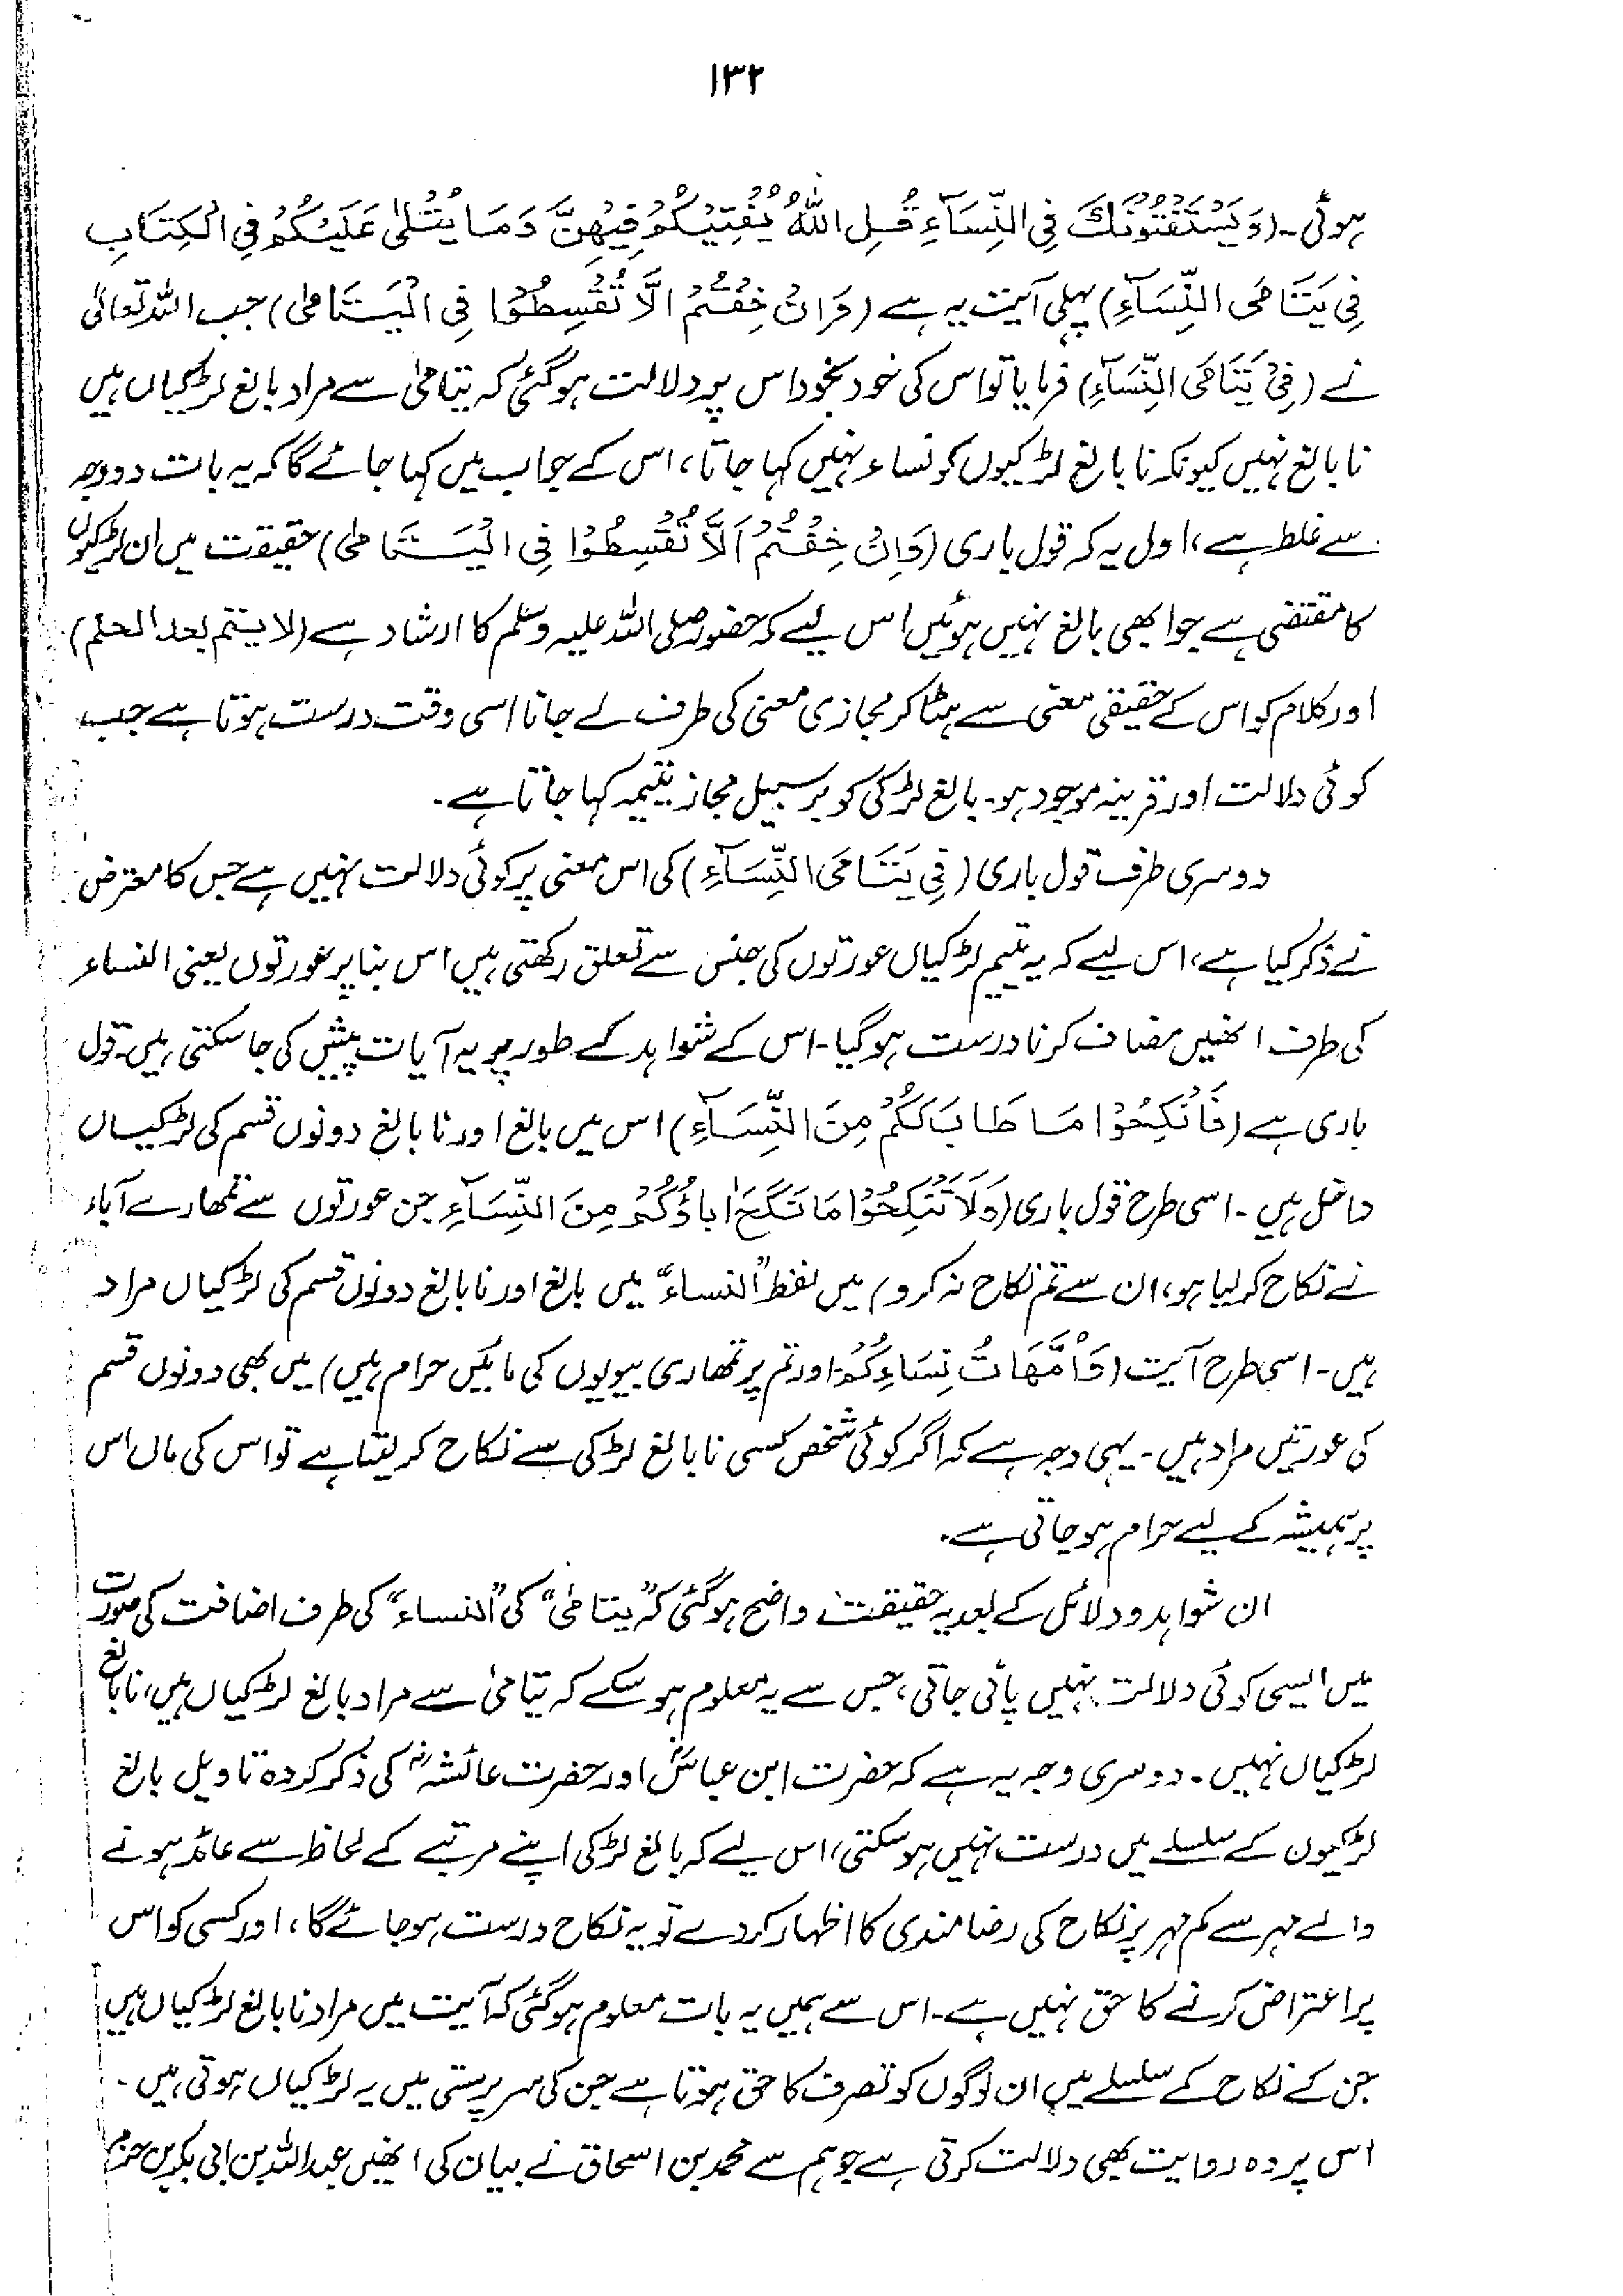 ۱۳۲
ہوئی۔ (وَيَسْتَفْتُوْنَكَ فِي النِّسَآءِ قُلِ اللّٰهُ يُفْتِيْكُمْ فِيْهِنَّ وَمَا يُتْلٰى عَلَيْكُمْ فِي الْكِتَابِ
فِيْ يَتَامَى النِّسَآءِ) پہلی آیت یہ ہے (وَاِنْ خِفْتُمْ اَلَّا تُقْسِطُوْا فِي الْيَتَامٰى) جب اللہ تعالیٰ
نے (فِيْ يَتَامَى النِّسَآءِ) فرمایا تو اس کی خود بخود اس پر دلالت ہوگئی کہ یتامیٰ سے مراد بالغ لڑکیاں ہیں
نابالغ نہیں کیونکہ نابالغ لڑکیوں کو نساء نہیں کہا جاتا، اس کے جواب میں کہا جائے گا کہ یہ بات دو وجہ
سے غلط ہے، اول یہ کہ قول باری (وَاِنْ خِفْتُمْ اَلَّا تُقْسِطُوْا فِي الْيَتَامٰى) حقیقت میں ان لڑکیوں
کا مقتضی ہے جو ابھی بالغ نہیں ہوئیں اس لیے کہ حضور صلی اللہ علیہ وسلم کا ارشاد ہے (لا یتم بعد الحلم)
اور کلام کو اس کے حقیقی معنی سے ہٹا کر مجازی معنی کی طرف لے جانا اسی وقت درست ہوتا ہے جب
کوئی دلالت اور قرینہ موجود ہو۔ بالغ لڑکی کو بر سبیل مجاز یتیمہ کہا جاتا ہے۔
دوسری طرف قول باری (فِيْ يَتَامَى النِّسَآءِ) کی اس معنی پر کوئی دلالت نہیں ہے جس کا معترض
نے ذکر کیا ہے، اس لیے کہ یہ یتیم لڑکیاں عورتوں کی جنس سے تعلق رکھتی ہیں اس بنا پر عورتوں یعنی النساء
کی طرف انھیں مضاف کرنا درست ہو گیا۔ اس کے شواہد کے طور پر یہ آیات پیش کی جا سکتی ہیں۔ قول
باری ہے (فَانْكِحُوْا مَا طَابَ لَكُمْ مِنَ النِّسَآءِ) اس میں بالغ اور نابالغ دونوں قسم کی لڑکیاں
داخل ہیں۔ اسی طرح قول باری (وَلَا تَنْكِحُوْا مَا نَكَحَ اٰبَاؤُكُمْ مِنَ النِّسَآءِ جن عورتوں سے تمھارے آباء
نے نکاح کر لیا ہو، ان سے تم نکاح نہ کرو) میں لفظ "النساء" میں بالغ اور نابالغ دونوں قسم کی لڑکیاں مراد
ہیں۔ اسی طرح آیت (وَاُمَّهَاتُ نِسَاءِكُمْ۔ اور تم پر تمھاری بیویوں کی مائیں حرام ہیں) میں بھی دونوں قسم
کی عورتیں مراد ہیں۔ یہی وجہ ہے کہ اگر کوئی شخص کسی نابالغ لڑکی سے نکاح کر لیتا ہے تو اس کی ماں اس
پر ہمیشہ کے لیے حرام ہو جاتی ہے۔
ان شواہد و دلائل کے بعد یہ حقیقت واضح ہوگئی کہ "یتامیٰ" کی "النساء" کی طرف اضافت کی صورت
میں ایسی کوئی دلالت نہیں پائی جاتی، جس سے یہ معلوم ہو سکے کہ یتامیٰ سے مراد بالغ لڑکیاں ہیں، نابالغ
لڑکیاں نہیں۔ دوسری وجہ یہ ہے کہ حضرت ابن عباسؓ اور حضرت عائشہؓ کی ذکر کردہ تاویل بالغ
لڑکیوں کے سلسلے میں درست نہیں ہو سکتی، اس لیے کہ بالغ لڑکی اپنے مرتبے کے لحاظ سے عائد ہونے
والے مہر سے کم مہر پر نکاح کی رضامندی کا اظہار کر دے تو یہ نکاح درست ہو جائے گا، اور کسی کو اس
پر اعتراض کرنے کا حق نہیں ہے۔ اس سے ہمیں یہ بات معلوم ہوگئی کہ آیت میں مراد نابالغ لڑکیاں ہیں
جن کے نکاح کے سلسلے میں ان لوگوں کو تصرف کا حق ہوتا ہے جن کی سرپرستی میں یہ لڑکیاں ہوتی ہیں۔
اس پر وہ روایت بھی دلالت کرتی ہے جو ہم سے محمد بن اسحاق نے بیان کی انھیں عبداللہ بن ابی بکر بن حزم